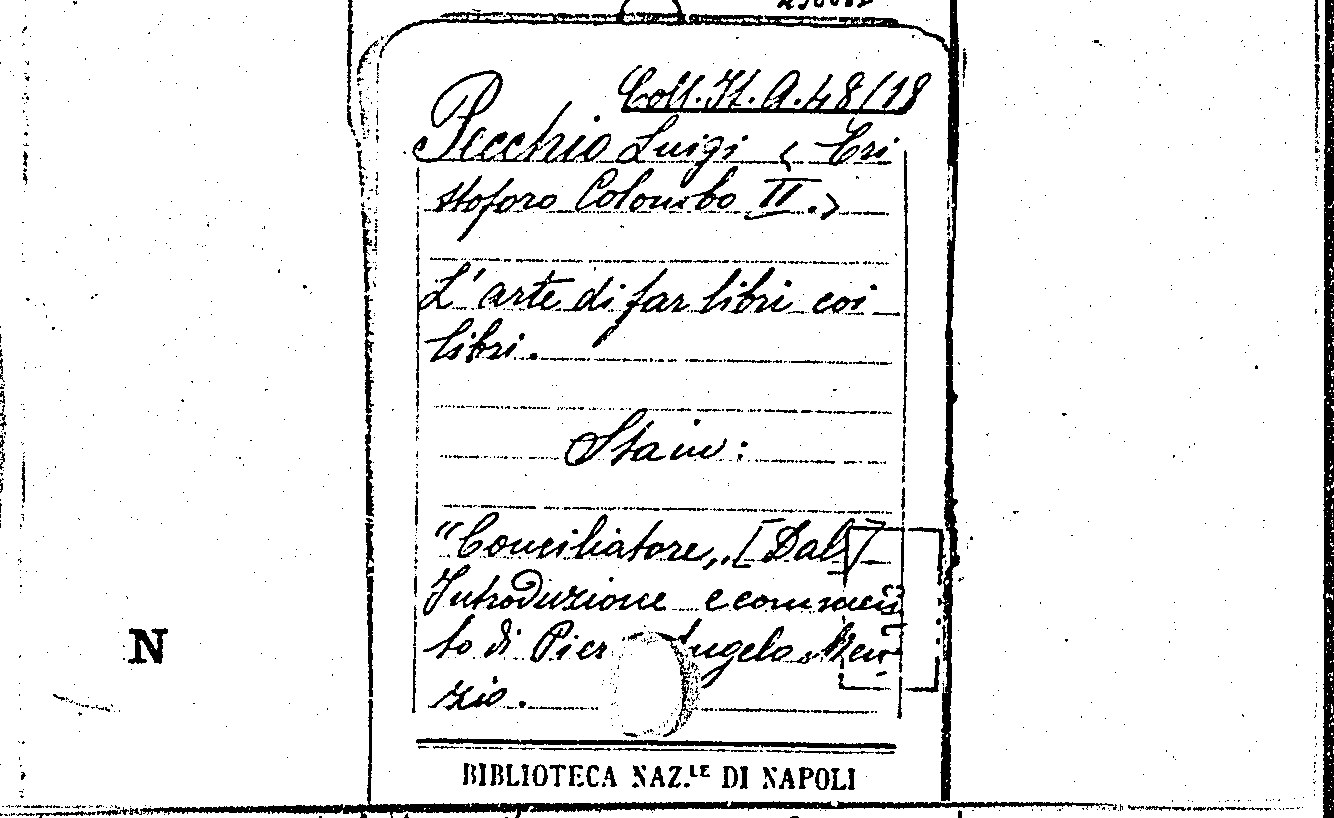 Coll. It. A. 48/18
Pecchio Luigi (Cri
stoforo Colombo II.)
L'arte di far libri coi
libri.
Sta in:
"Conciliatore,, [Dal]
Introduzione e commen
to di Pier Angelo Men
zio.
N
BIBLIOTECA NAZ.LE DI NAPOLI